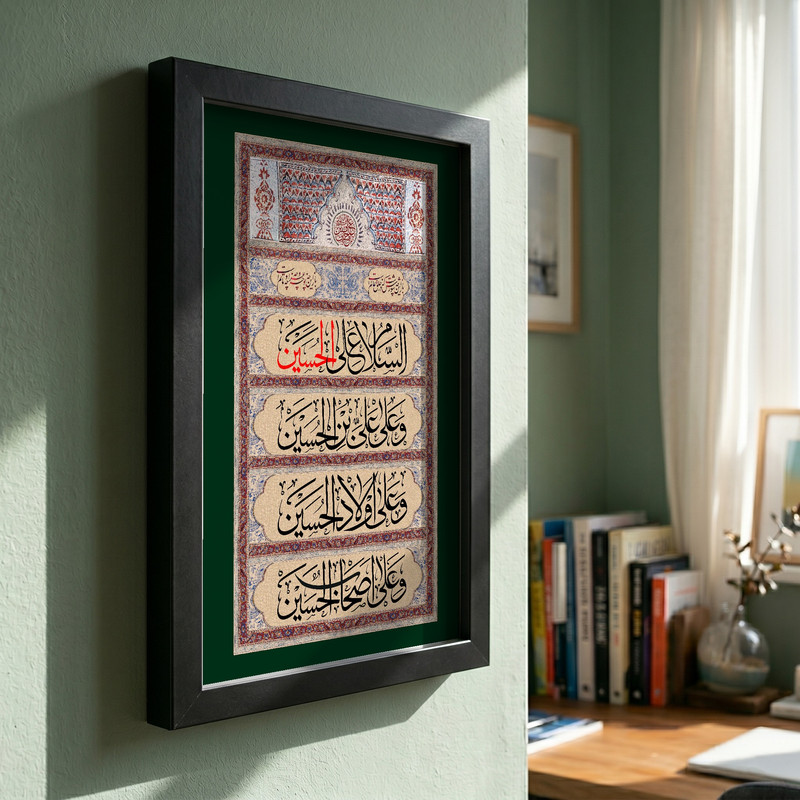 السَّلام على الحسين
وعلى علىِّ بن الحسين
وعلى اولاد الحسين
وعلى اصحاب الحسين